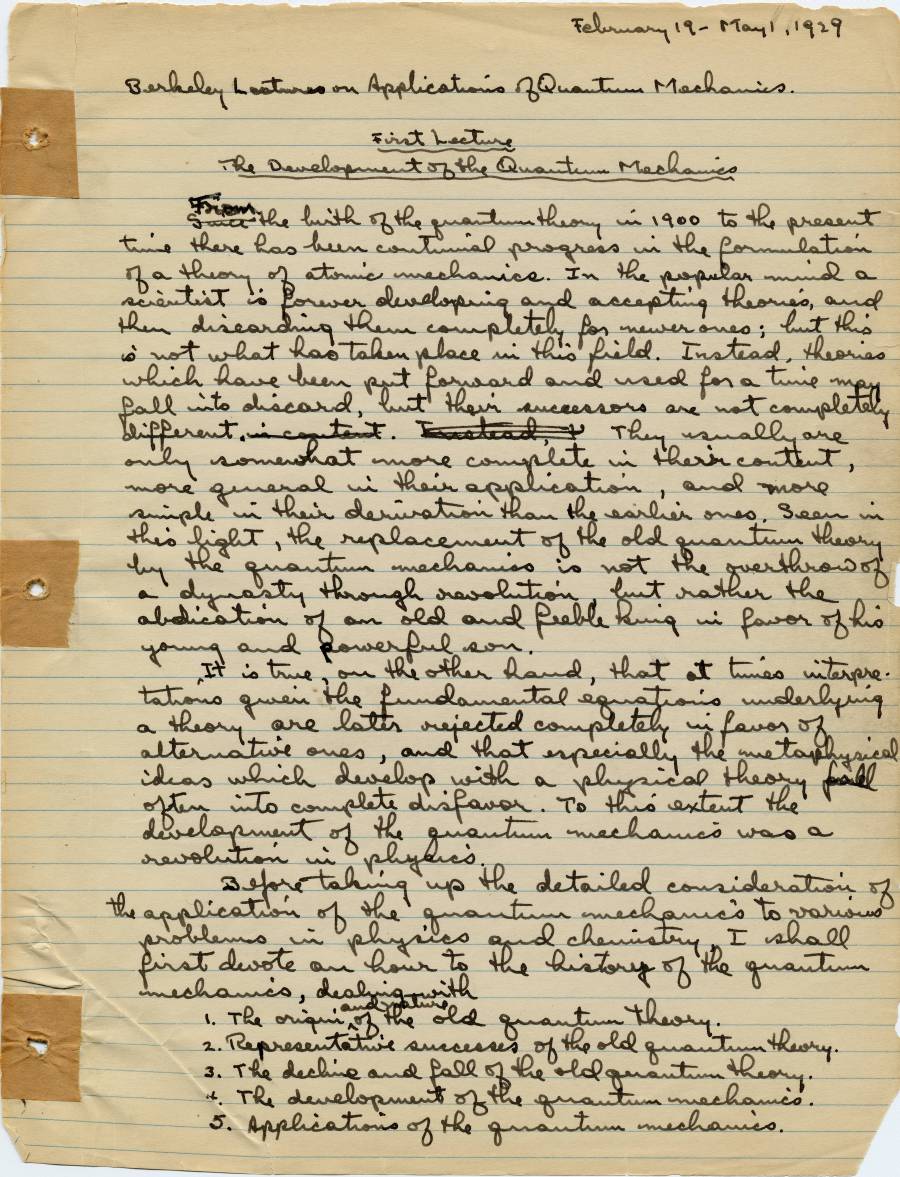 February 19 - May 1, 1929
Berkeley Lectures on Applications of Quantum Mechanics.
First Lecture
The Development of the Quantum Mechanics
From
Since the birth of the quantum theory in 1900 to the present
time there has been continual progress in the formulation
of a theory of atomic mechanics. In the popular mind a
scientist is forever developing and accepting theories, and
then discarding them completely for newer ones; but this
is not what has taken place in this field. Instead, theories
which have been put forward and used for a time may
fall into discard, but their successors are not completely
different, in content. Instead, t They usually are
only somewhat more complete in their content,
more general in their application, and more
simple in their derivation than the earlier ones. Seen in
this light, the replacement of the old quantum theory
by the quantum mechanics is not the overthrow of
a dynasty through revolution, but rather the
abdication of an old and feeble king in favor of his
young and powerful son.
It is true, on the other hand, that at times interpre-
tations given the fundamental equations underlying
a theory are latter rejected completely in favor of
alternative ones, and that especially the metaphysical
ideas which develop with a physical theory fall
often into complete disfavor. To this extent the
development of the quantum mechanics was a
revolution in physics.
Before taking up the detailed consideration of
the application of the quantum mechanics to various
problems in physics and chemistry, I shall
first devote an hour to the history of the quantum
mechanics, dealing with
and nature
1. The origin of the old quantum theory.
2. Representative successes of the old quantum theory.
3. The decline and fall of the old quantum theory.
4. The development of the quantum mechanics.
5. Applications of the quantum mechanics.